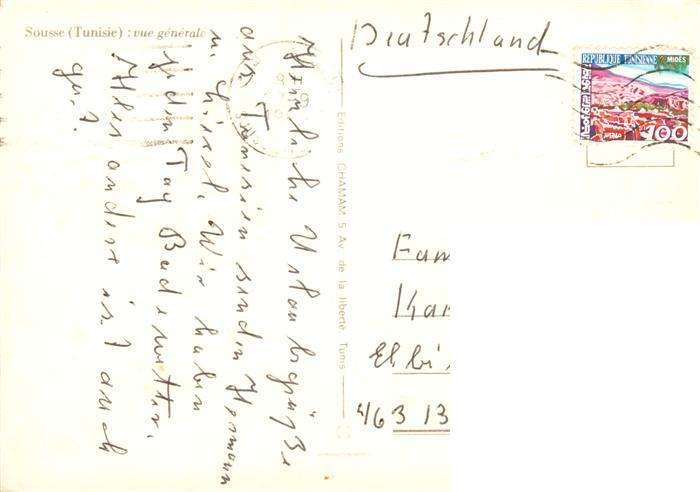 Sousse (Tunisie) : vue générale
Deutschland
REPUBLIQUE TUNISIENNE
MIDÈS
100
Herzliche Urlaubsgrüße
aus Tunesien senden Hermann
u. Lissel. Wir haben
jeden Tag Badewetter.
Alles andere ist auch
gut.
Editions CHAMAM 5 Av de la liberté Tunis
Fam
Kar
Elbi
463 13